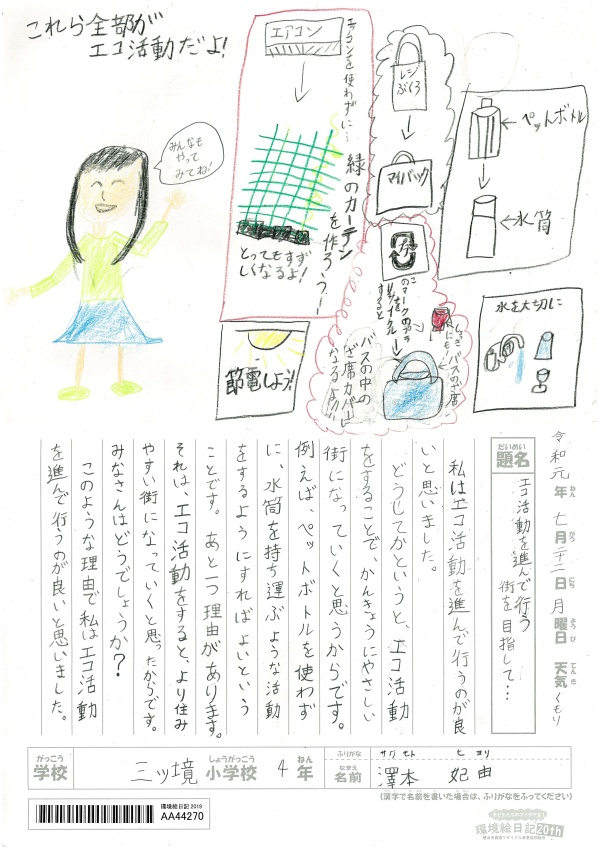 これら全部が
エコ活動だよ!
みんなも
やって
みてね!
エアコン
エアコンを使わずに…
緑のカーテン
を作ろう!
とってもすず
しくなるよ!
レジ
ぶくろ
マイバック
ペットボトル
水筒
このマークのプラ
をリサイクル
すると
バスの中の
ざ席カバー
になるよ!
バスのざ席
節電しよう!
水を大切に
令和元年 七月二十二日 月曜日 天気 くもり
ねん がつ にち ようび てんき
だいめい
題名
エコ活動を進んで行う
街を目指して…
私はエコ活動を進んで行うのが良
いと思いました。
どうしてかというと、エコ活動
をすることで、かんきょうにやさしい
街になっていくと思うからです。
例えば、ペットボトルを使わず
に、水筒を持ち運ぶような活動
をするようにすればよいという
ことです。あと一つ理由があります。
それは、エコ活動をすると、より住み
やすい街になっていくと思ったからです。
みなさんはどうでしょうか?
このような理由で私はエコ活動
を進んで行うのが良いと思いました。
がっこう しょうがっこう ねん
学校 三ツ境 小学校 4年
ふりがな サワモト ヒヨリ
なまえ
名前 澤本 妃由
(漢字で名前を書いた場合は、ふりがなをふってください)
環境絵日記 2019
AA44270
環境絵日記20th